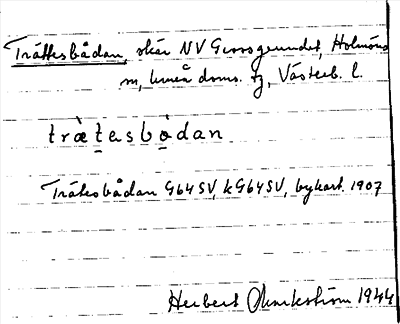 Trättesbådan, skär NV Grossgrundet, Holmöns
sn, Umeå doms. tg, Västerb. l.
træ̀tasbòdan
Trätesbådan G64SV, kG64SV, bykart. 1907
Herbert 1944